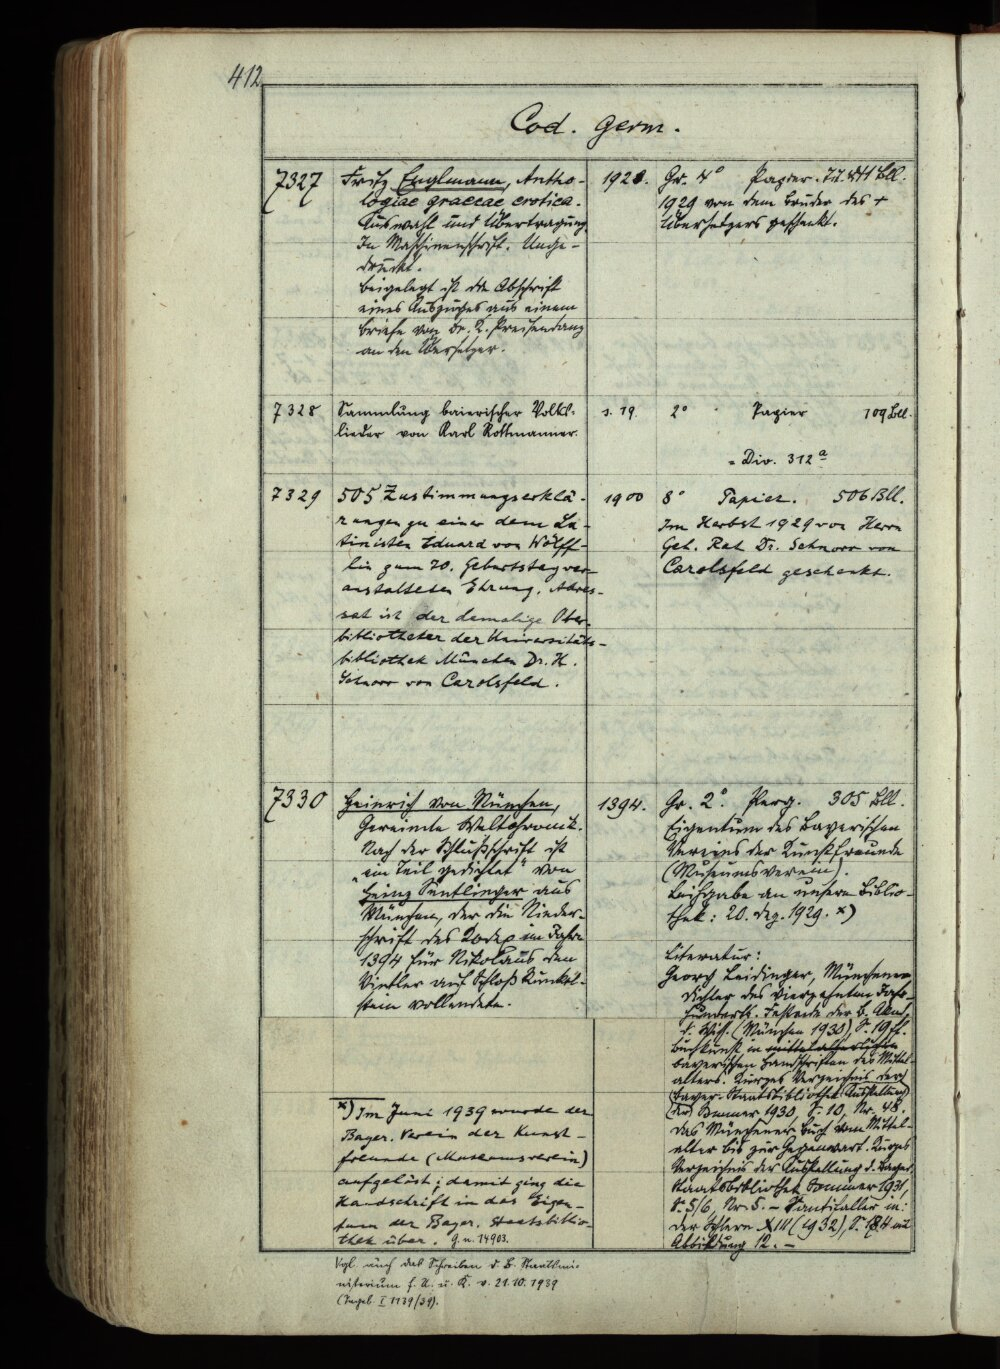 412
Cod. germ.
7327
Fritz Englmann, Antho-
logiae graecae erotica.
Auswahl und Übertragung.
In Maschinenschrift. Unge-
druckt.
Beigelegt ist die Abschrift
eines Auszuges aus einem
Briefe von Dr. K. Preisendanz
an den Übersetzer.
1928.
Gr. 4° Papier. Bll.
1929 von dem Bruder des +
Übersetzers geschenkt.
7328
Sammlung baierischer Volks-
lieder von Karl Rottmanner.
s. 19.
2° Papier 109 Bll.
= Div. 312a
7329
505 Zustimmungserklä-
rungen zu einer dem La-
tinisten Eduard von Wölff-
lin zum 70. Geburtstag ver-
anstalteten Ehrung. Adres-
sat ist der damalige Ober-
bibliothekar der Universitäts-
bibliothek München Dr. H.
Schnorr von Carolsfeld.
1900
8° Papier. 506 Bll.
Im Herbst 1929 von Herrn
Geh. Rat Dr. Schnorr von
Carolsfeld geschenkt.
7330
Heinrich von München,
Gereimte Weltchronik.
Nach der Schlußschrift ist
„ein Teil gedichtet" von
Heinz Sentlinger aus
München, der die Nieder-
schrift des Codex im Jahre
1394 für Nikolaus den
Vintler auf Schloß Runkel-
stein vollendete.
1394.
Gr. 2°. Perg. 305 Bll.
Eigentum des Bayerischen
Vereins der Kunstfreunde
(Museumsverein).
Leihgabe an unsere Biblio-
thek: 20. Dez. 1929. x)
Literatur:
Georg Leidinger, Münchener
Dichter des vierzehnten Jahr-
hunderts. Festrede der B. Akad.
d. Wiss. (München 1930), S. 19 ff.
Buchkunst in mittelalterlichen
bayerischen Handschriften des Mittel-
alters. Kurzes Verzeichnis der
Bayer. Staatsbibliothek Ausstellung
Sommer 1930, S. 10, Nr. 48.
Das Münchener Buch vom Mittel-
alter bis zur Gegenwart. Kurzes
Verzeichnis der Ausstellung d. Bayer.
Staatsbibliothek Sommer 1931,
S. 5/6, Nr. 5. – Santifaller in:
Der Schlern XIII (1932), S. 184 mit
Abbildung 12. –
x) Im Juni 1939 wurde der
Bayer. Verein der Kunst-
freunde (Museumsverein)
aufgelöst; damit ging die
Handschrift in das Eigen-
tum der Bayer. Staatsbiblio-
thek über. G. n. 14903.
Vgl. auch das Schreiben d. B. Staatsmi-
nisterium f. U. u. K. v. 21.10.1939
I 1139/39).